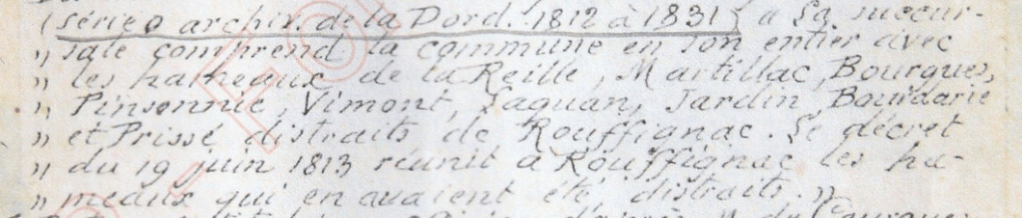 (série o archiv. de la Dord. 1812 à 1831) « La succur-
» sale comprend la commune en son entier avec
» les hameaux de la Reille, Martillac, Bourgues,
» Pinsonnie, Vimont, Laguan, Jardin, Bourdarie
» et Prissé distraits de Rouffignac. Le décret
» du 19 juin 1813 réunit à Rouffignac les ha-
» meaux qui en avaient été distraits. »